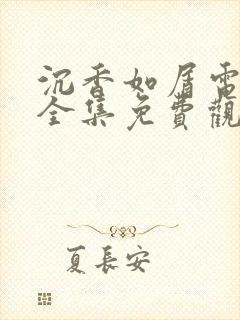 沉香如屑電
全集免費觀
夏長安